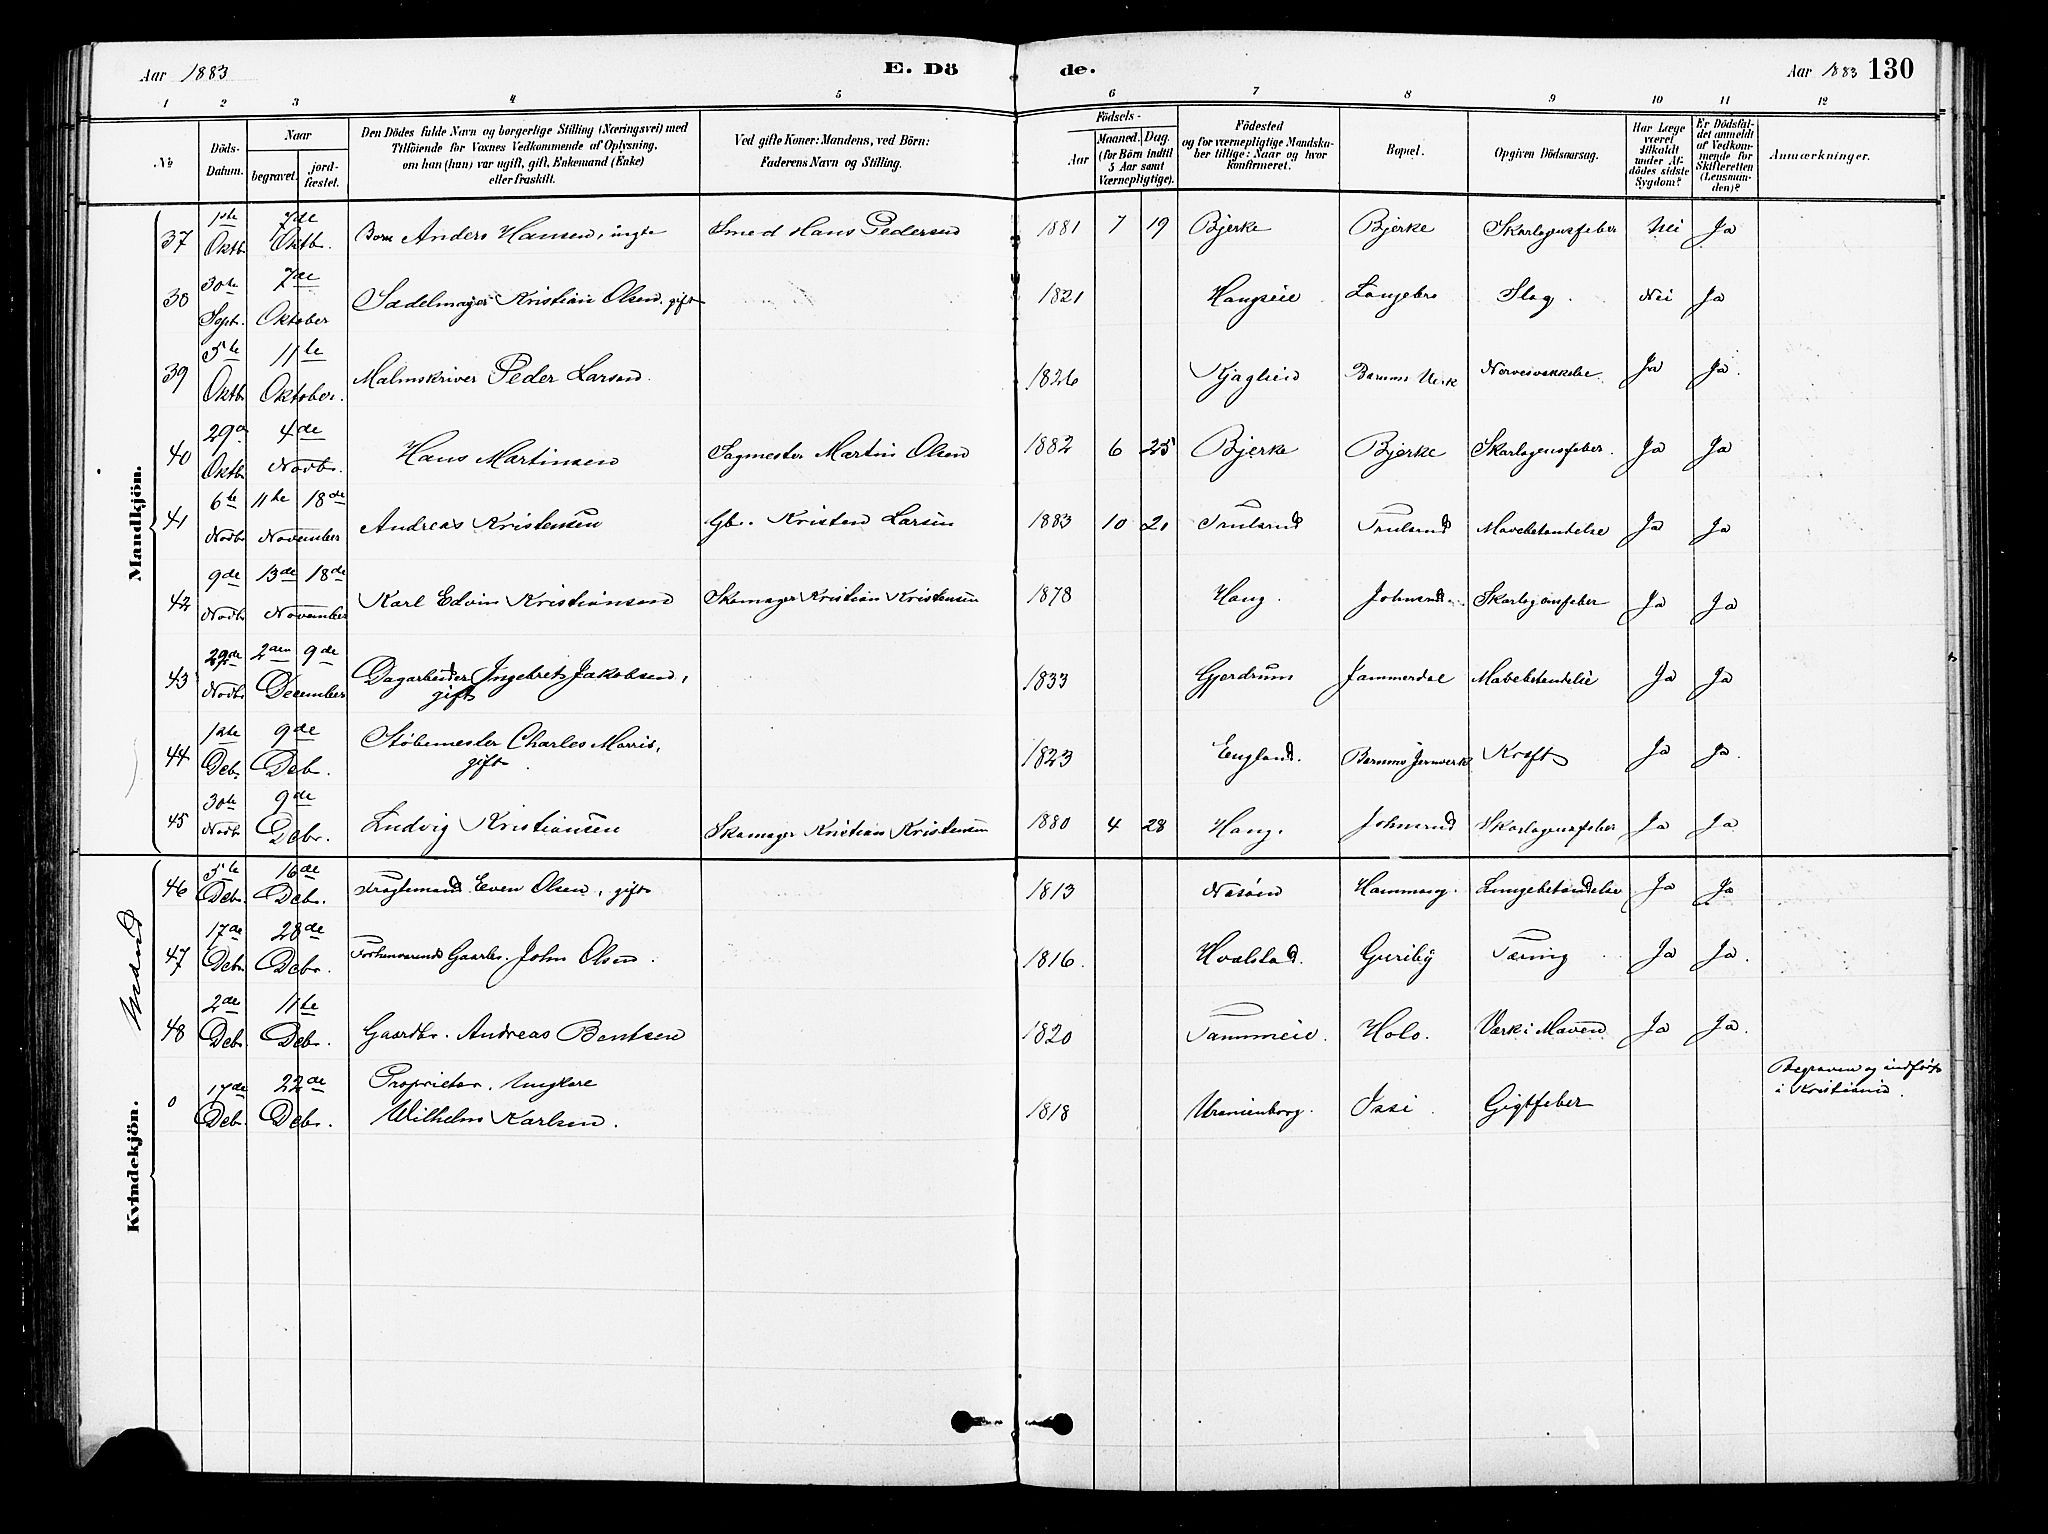 Aar 1883
E. Dö
de.
Aar 1883 130
1 2 3 4 5 6 7 8 9 10 11 12
№
Döds-
Datum.
Naar
begravet.
jord-
fæstet.
Den Dödes fulde Navn og borgerlige Stilling (Næringsvei) med
Tilföiende for Voxnes Vedkommende af Oplysning,
om han (hun) var ugift, gift, Enkemand (Enke)
eller fraskilt.
Ved gifte Koner: Mandens, ved Börn:
Faderens Navn og Stilling.
Födsels-
Aar
Maaned. Dag.
(for Börn indtil
5 Aar samt
Værnepligtige).
Födested
og for værnepligtige Mandska-
ber tillige: Naar og hvor
konfirmeret.
Bopæl.
Opgiven Dödsaarsag.
Har Læge
været
tilkaldt
under Af-
dödes sidste
Sygdom?
Er Dödsfal-
det anmeldt
af Vedkom-
mende for
Skifteretten
(Lensman-
den)?
Anmærkninger.
Mandkjön.
37 1ste Oktb. 7de Oktb. Barn Anders Hansen, Smed Hans Pedersen 1881 7 19 Bjerke Bjerke Skarlagensfeber Nei Ja
38 30te Septr. 7de Oktober Sadelmager Kristian Olsen. gift 1821 Haugseie Langebro Slag. Nei Ja
39 5te Oktb 11te Oktober. Malmskriver Peder Larsen. 1826 Bærums Verk Ja Ja.
40 29de Oktb. 4de Novbr. Hans Martinsen Sagmester Martin Olsen 1882 6 25 Bjerke Bjerke Skarlagensfeber. Ja Ja
41 6te Novbr 11te 18de November Andreas Kristensen Gb. Kristen Larsen 1883 10 21 Trulsrud Trulsrud Mavebetændelse Ja Ja
42 9de Novbr 13de 18de November Karl Edvin Kristiansen Skomager Kristian Kristensen 1878 Haug. Johnsrud. Skarlagensfeber Ja Ja
43 29de Novbr 2den 9de December Dagarbeider Ingebret Jakobsen,
gift 1833 Gjerdrum Jammerdal Mavebetændelse Ja Ja
44 1ste Debr. 9de Debr. Støbemester Charles Morris,
gift 1823 England. Bærums Jernverk Kræft Ja Ja.
45 30te Novbr 9de Debr. Ludvig Kristiansen Skomager Kristian Kristensen 1880 4 28 Haug. Johnsrud Skarlagensfeber Ja Ja
Kvindekjön.
Mænd
46 5te Debr. 16de Debr. Even Olsen, gift 1813 Næsøen Lungebetændelse Ja Ja
47 17de Debr. 28de Debr. Forhenværende Gaardbr. John Olsen. 1816. Hvalstad. Guriby Tæring Ja Ja.
48 2de Debr. 11te Debr. Gaardbr. Andreas Bentsen 1820 Tammeie. Holo. Værk i Maven Ja Ja.
0 17de Debr. 22de Debr. Proprietær. Ungkarl
Wilhelm Karlsen. 1818 Uranienborg. Issi. Gigtfeber
Begraven og indført
i Kristiania.